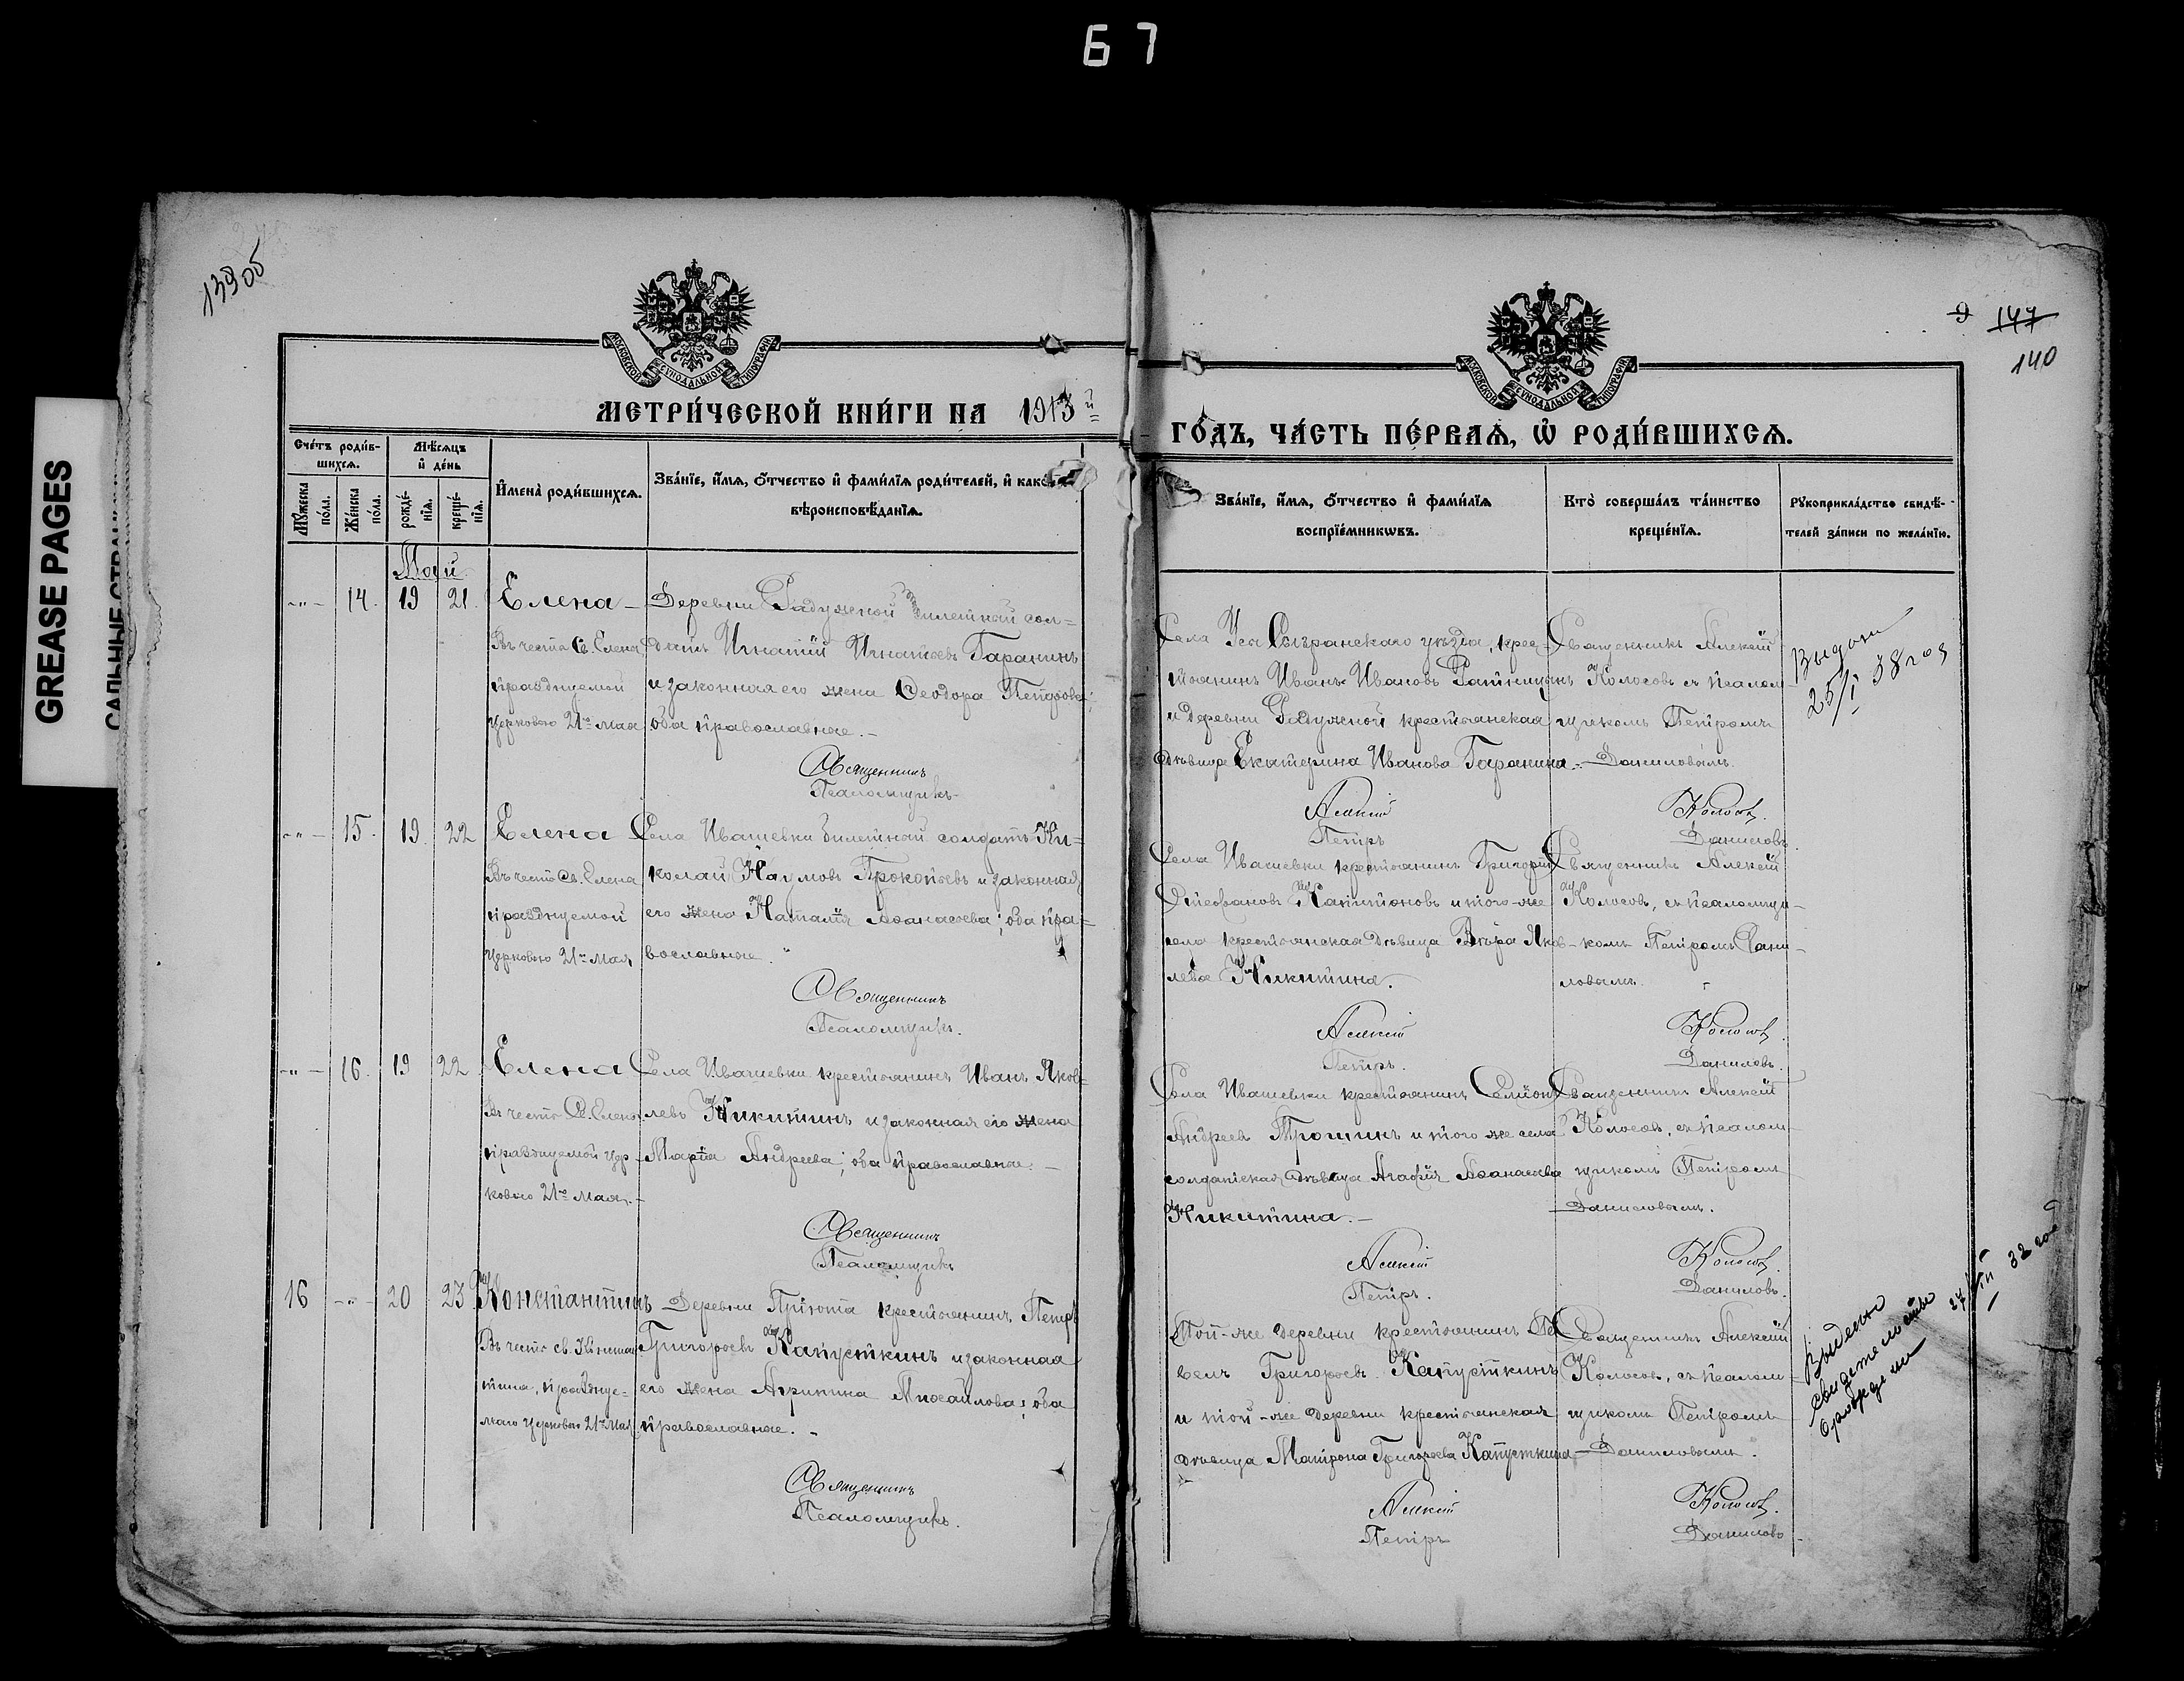 67
GREASE PAGES
139об
9 147
140
МОСКОВСКОЙ СѴНОДАЛЬНОЙ ТИПОГРАФІИ
МОСКОВСКОЙ СѴНОДАЛЬНОЙ ТИПОГРАФІИ
МЕТРИ́ЧЕСКОЙ КНИ́ГИ НА 1913й
ГО́ДЪ, ЧА́СТЬ ПЕ́РВАѦ, Ѡ҆ РОДИ́ВШИХСѦ.
Сче́тъ роди́в-
шихсѧ.
Мѣ́сѧцъ
и҆ де́нь
Мꙋ́жеска по́ла.
Же́нска по́ла.
рожде́-
нїѧ.
креще́-
нїѧ.
И҆мена̀ роди́вшихсѧ.
Зва́нїе, и҆́мѧ, ѻ҆́тчество и҆ фами́лїѧ роди́телей, и҆ како
вѣроисповѣ́данїѧ.
Зва́нїе, и҆́мѧ, ѻ҆́тчество и҆ фами́лїѧ
воспрїе́мникѡвъ.
Кто̀ соверша́лъ та́инство
креще́нїѧ.
Рꙋкоприкла́дство свидѣ́-
телей за́писи по жела́нїю.
Май
-"- 14. 19 21. Елена
Въ честь Св. Елена
празднуемой
церковью 21го мая
Деревни Радужной билетный сол=
датъ Игнатій Игнатьевъ Гаранинъ
и законная его жена Ѳеодора Петрова;
оба православные.
Священникъ
Псаломщикъ
Села Уся Сызранскаго уѣзда, крес-
тьянинъ Иванъ Ивановъ
и деревни Радужной крестьянская
дѣвица Екатерина Иванова Гаранина.
Алексій
Петръ
Священникъ Алексій
Колосовъ съ псалом-
щикомъ Петромъ
Даниловымъ.
Колосовъ.
Даниловъ.
25/I 38 год
-"- 15. 19. 22 Елена
Въ честь Св. Елена
празднуемой
церковью 21го мая
Села Ивашевки билетный солдатъ Ни=
колай Наумовъ Прокопьевъ и законная
его жена Наталія Аѳанасьева; оба пра-
вославные.
Священникъ
Псаломщикъ.
Села Ивашевки крестьянинъ Григорій
Стефановъ Капитоновъ и того-же
села крестьянская дѣвица Вѣра Яков-
лева Никитина.
Алексій
Петръ.
Священникъ Алексій
Колосовъ, съ псаломщи-
комъ Петромъ Дани-
ловымъ.
Колосовъ.
Даниловъ.
-"- 16. 19 22 Елена
Въ честь Св. Елена
празднуемой цер-
ковью 21го мая.
Села Ивашевки крестьянинъ Иванъ Яков-
левъ Никитинъ и законная его жена
Марія Андреева; оба православные.
Священникъ
Псаломщикъ
Села Ивашевки крестьянинъ Семіонъ
Андреевъ Трошинъ и того же села
солдатская дѣвица Агафія Аѳанасьева
Никитина.
Алексій
Петръ.
Священникъ Алексій
Колосовъ, съ псалом-
щикомъ Петромъ
Даниловымъ.
Колосовъ.
Даниловъ.
16 -"- 20 23 Константинъ
Въ честь св. Констан-
тина, праздну-
емаго церковью 21го мая
Деревни Пріюта крестьянинъ Петръ
Григорьевъ Капусткинъ и законная
его жена Агрипина Михайлова; оба
православные.
Священникъ
Псаломщикъ.
Той-же деревни крестьянинъ Па
велъ Григорьевъ Капусткинъ
и той-же деревни крестьянская
дѣвица Матрона Григорьева Капусткина
Алексій
Петръ
Священникъ Алексій
Колосовъ, съ псалом-
щикомъ Петромъ
Даниловымъ.
Колосовъ.
Даниловъ
Выдено
свидетельство
32 год